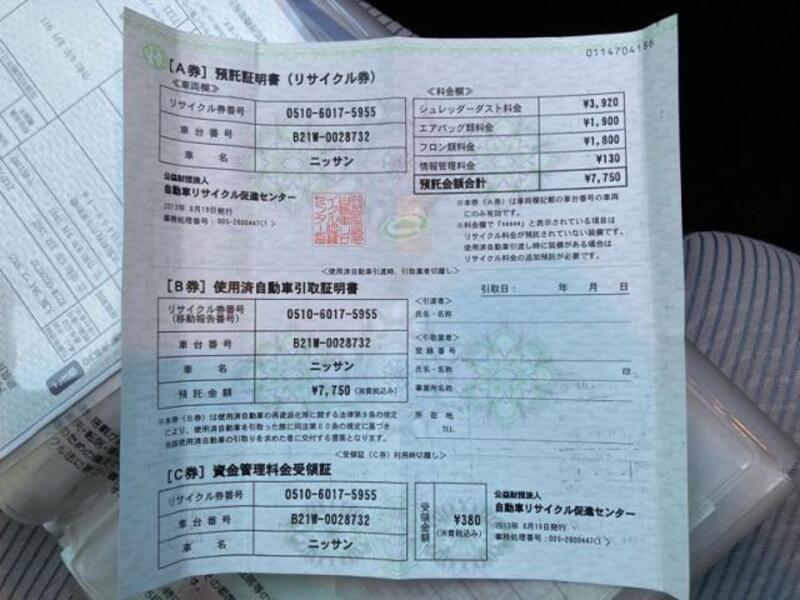 0114704186
[A券] 預託証明書(リサイクル券)
<車両欄>
リサイクル券番号 0510-6017-5955
車台番号 B21W-0028732
車名 ニッサン
<料金欄>
シュレッダーダスト料金 ¥3,920
エアバッグ類料金 ¥1,900
フロン類料金 ¥1,800
情報管理料金 ¥130
預託金額合計 ¥7,750
公益財団法人
自動車リサイクル促進センター
2013年 8月19日発行
事務処理番号:005-2600447(1)
※本券(A券)は車両欄記載の車台番号の車両
にのみ有効です。
※料金欄で「*****」と表示されている項目は
リサイクル料金が預託されていない装備です。
使用済自動車引渡し時に装備がある場合は
リサイクル料金の追加預託が必要です。
<使用済自動車引渡時、引取業者切離し>
[B券] 使用済自動車引取証明書
引取日: 年 月 日
リサイクル券番号
(移動報告番号) 0510-6017-5955
車台番号 B21W-0028732
車名 ニッサン
預託金額 ¥7,750 (消費税込み)
<引渡者>
氏名・名称
<引取業者>
登録番号
氏名・名称 印
事業所名称
所在地
TEL
※本券(B券)は使用済自動車の再資源化等に関する法律第8条の規定
により、使用済自動車を引取った際に同法第80条の規定に基づき
当該使用済自動車の引取りを求めた者に交付する書面となります。
<受領証(C券)利用時切離し>
[C券] 資金管理料金受領証
リサイクル券番号 0510-6017-5955
車台番号 B21W-0028732
車名 ニッサン
受領金額 ¥380
(消費税込み)
公益財団法人
自動車リサイクル促進センター
2013年 8月19日発行
事務処理番号:005-2600447(1)